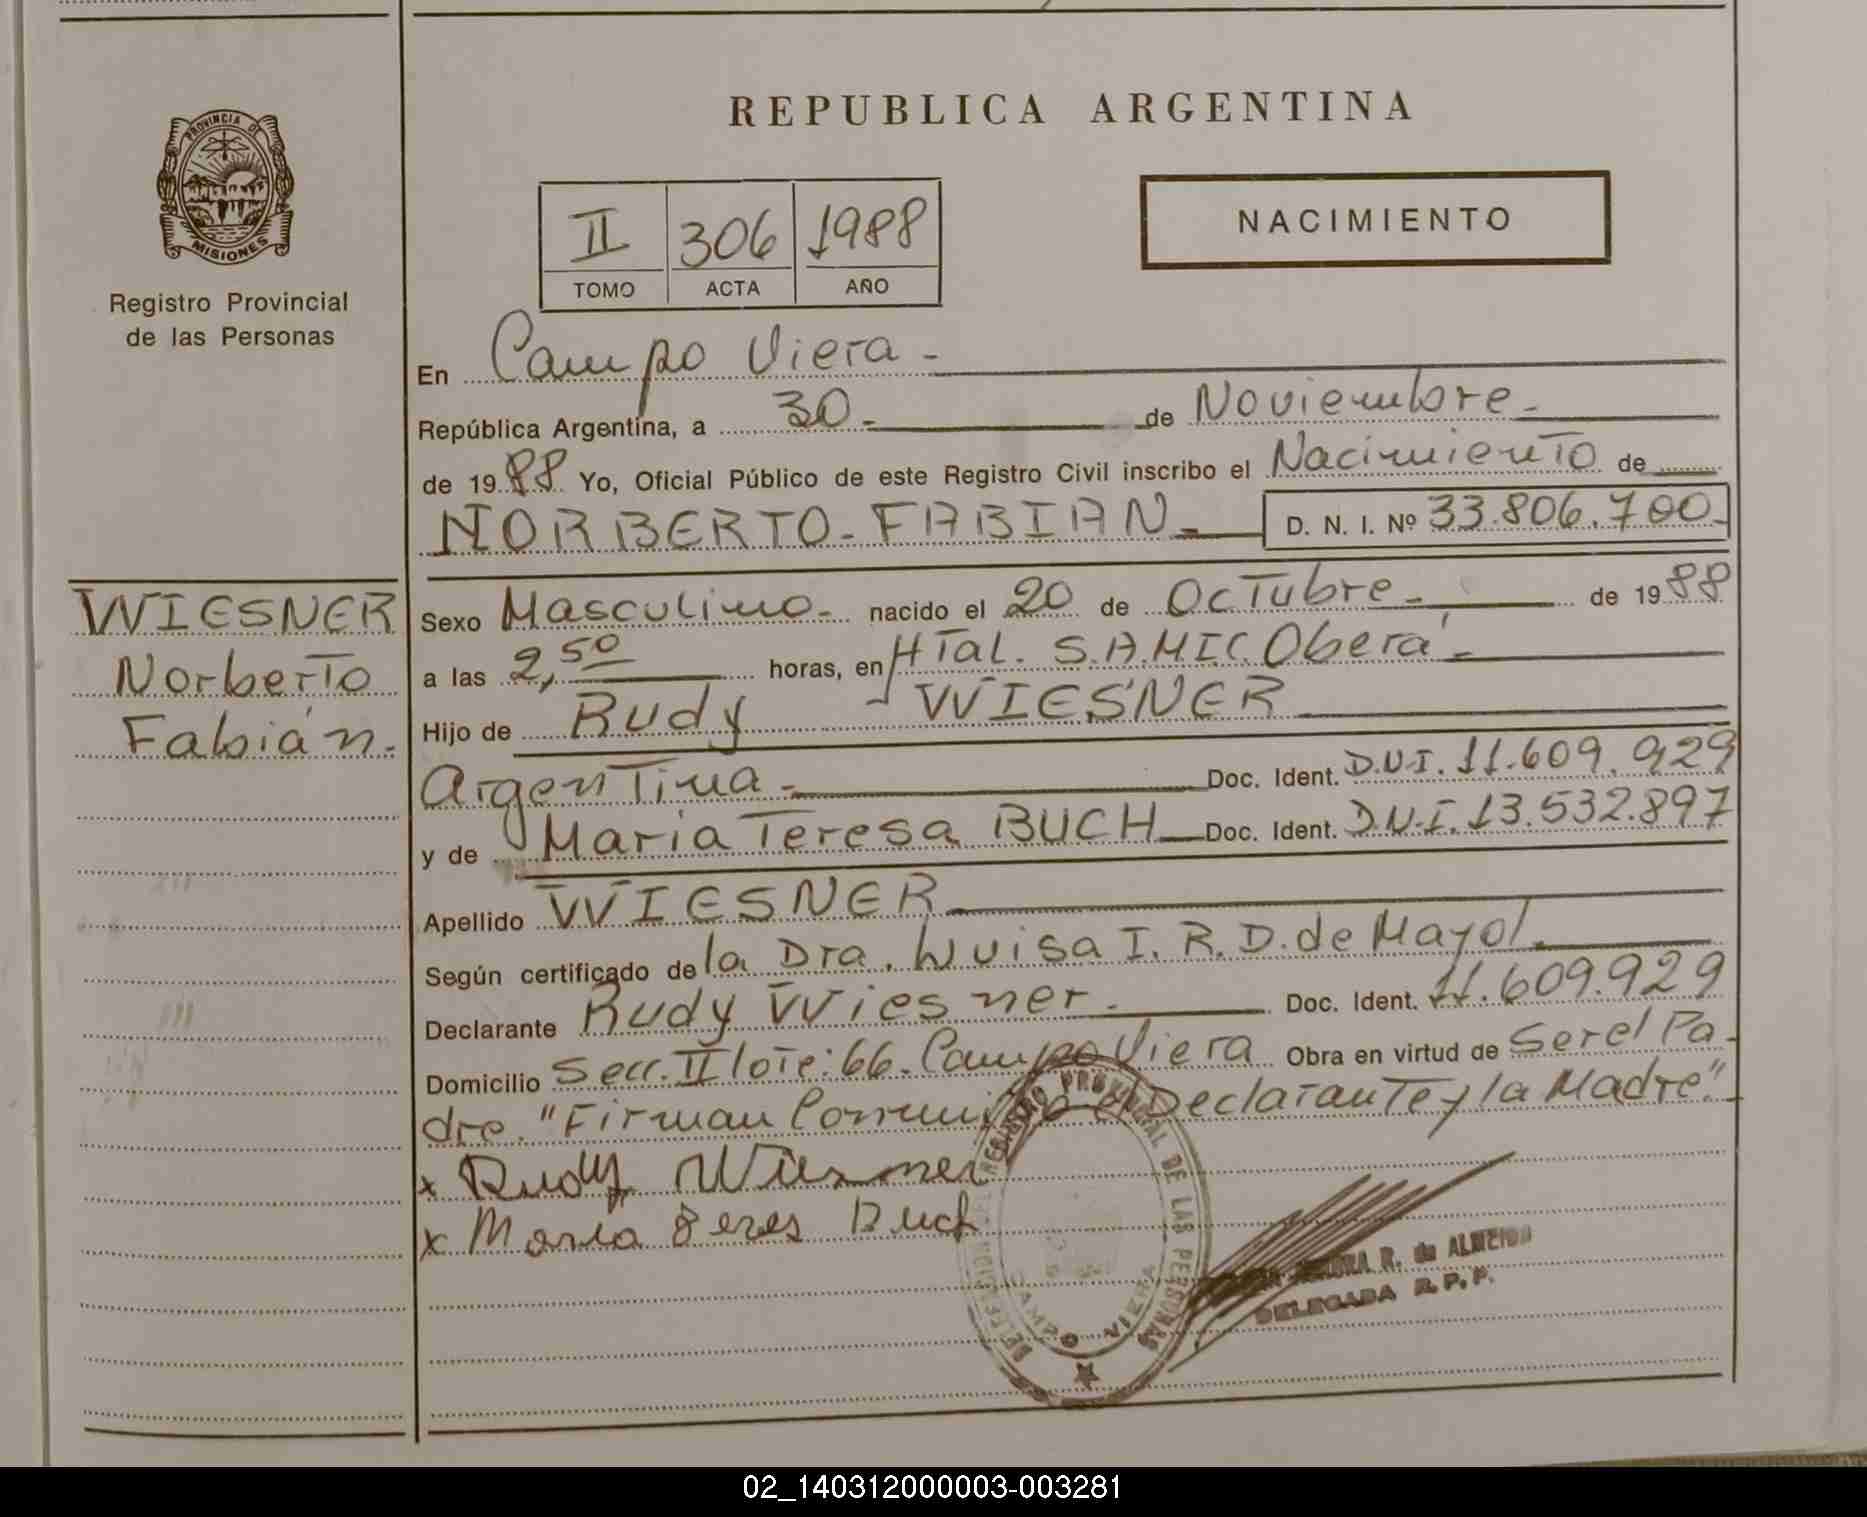 PROVINCIA DE
MISIONES
Registro Provincial
de las Personas
WIESNER
Norberto
Fabián.
REPUBLICA ARGENTINA
II 306 1988
TOMO ACTA AÑO
NACIMIENTO
En Campo Viera -
República Argentina, a 30 - de Noviembre -
de 1988 Yo, Oficial Público de este Registro Civil inscribo el Nacimiento de
NORBERTO - FABIAN - D. N. I. Nº 33.806.700-
Sexo Masculino - nacido el 20 de Octubre - de 1988
a las 2,50 horas, en HTal. S.A.M.I.C. Oberá -
Hijo de Rudy - WIESNER
Argentina - Doc. Ident. D.N.I. 11.609.929
y de Maria Teresa BUCH Doc. Ident. D.N.I. 13.532.897
Apellido WIESNER
Según certificado de la Dra. Luisa I. R. D. de Mayol.
Declarante Rudy Wiesner. Doc. Ident. 11.609.929
Domicilio Secc. II lote: 66. Campo Viera Obra en virtud de Ser el Pa-
dre. "Firman Conmigo el Declarante y la Madre".-
x Rudy Wiesner
x Maria Teres Buch
REGISTRO PROVINCIAL DE LAS PERSONAS
CAMPO VIERA
R. de ALMEIDA
DELEGADA R. P. P.
02_140312000003-003281